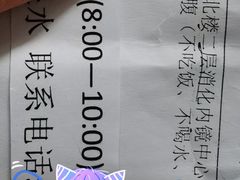 北楼二层消化内镜中心
腹（不吃饭、不喝水、
(8:00—10:00)
水 联系电话